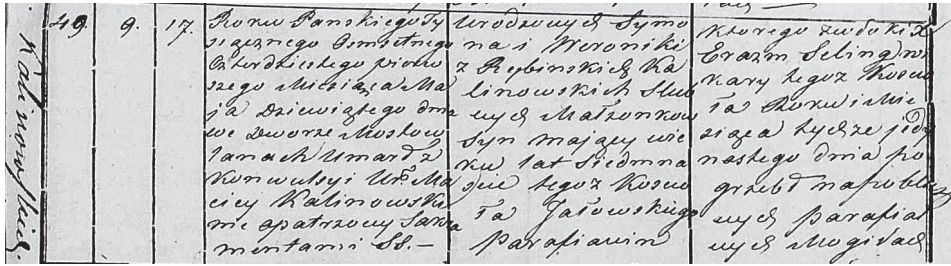 Kalinowskich.
49. 9. 17.
Roku Panskiego Ty
siącznego Osmsetnego
Czterdziestego pierw
szego Miesiąca Ma
ja Dziewiątego dnia
we Dworze Mostow
lanach Umarł z
Konwulsyi Ur. Ma
ciey Kalinowski
nie opatrzony Sakra
mentami SS. —
Urodzonych Symo
na i Weroniki
z Rybinskich Ka
linowskich Slub
nych Małżonkow
syn maiący wie
ku lat Siedmna
scie tegoż Koscio
ła Jałowskiego
Parafianin
ktorego zwłoki X
Erazm Seling wi
kary tegoż Koscio
ła Roku i Mie
siąca tychże jedy
nastego dnia po
grzebł na pobli
nych parafial
nych Mogiłach